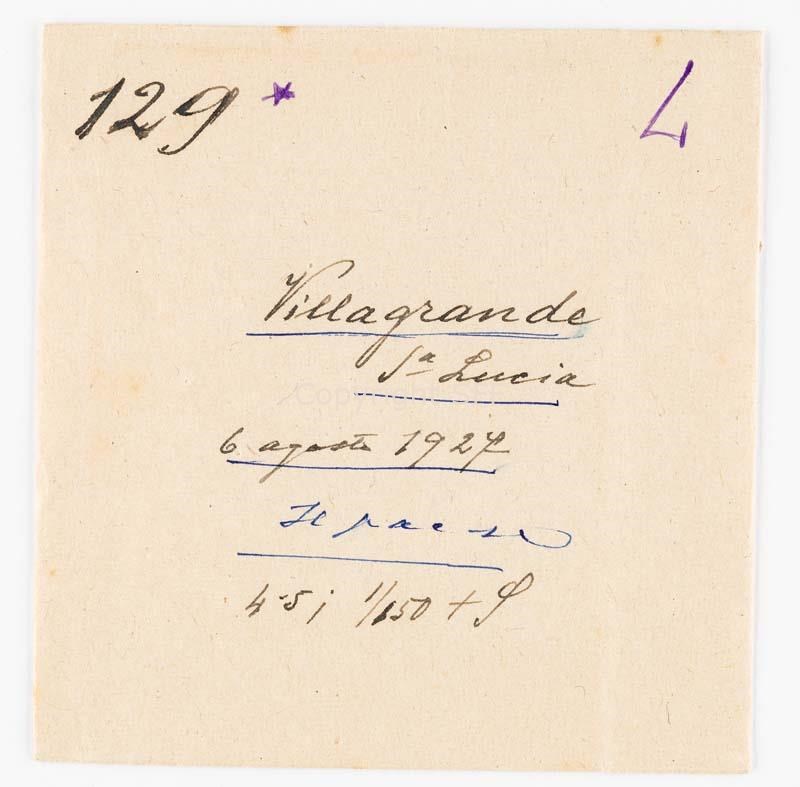 129 * L
Villagrande
Sᵃ Lucia
6 agosto 1927
Il paese
4-5; 1/150 +